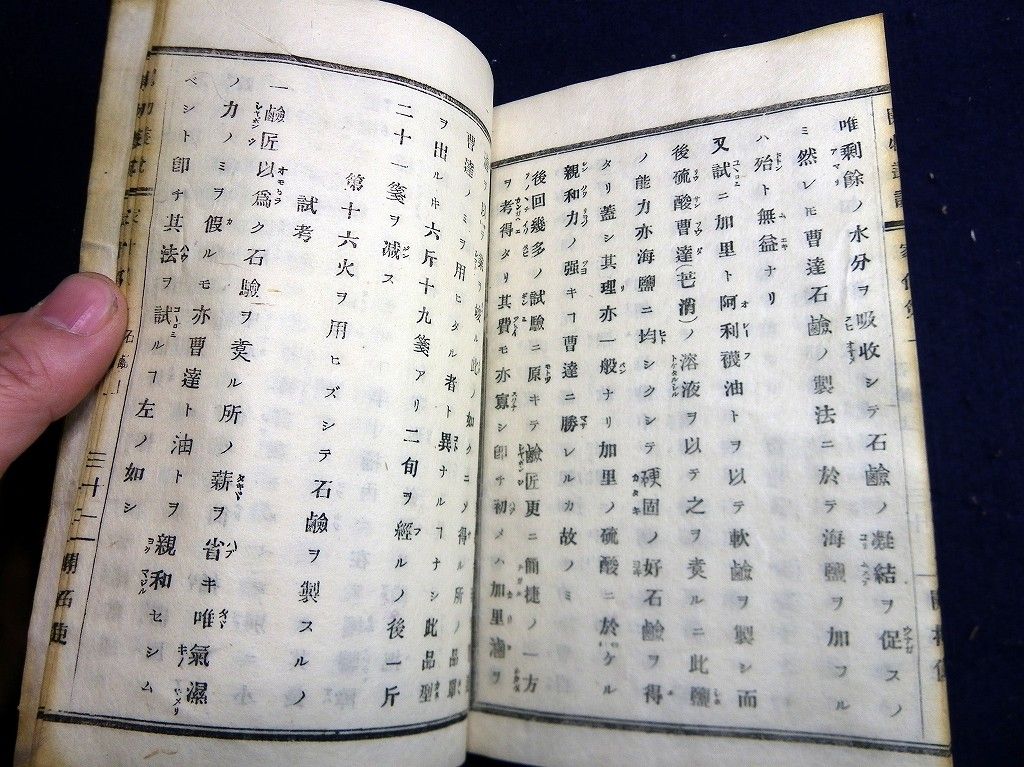 唯剰餘ノ水分ヲ吸收シテ石鹼ノ凝結ヲ促スノ
ミ然レモ曹達石鹼ノ製法ニ於テ海鹽ヲ加フル
ハ殆ト無益ナリ
又試ニ加里ト阿利襪油トヲ以テ軟鹼ヲ製シ而
後硫酸曹達(芒消)ノ溶液ヲ以テ之ヲ煑ルニ此鹽
ノ能力亦海鹽ニ均シクシテ硬固ノ好石鹼ヲ得
タリ蓋シ其理亦一般ナリ加里ノ硫酸ニ於ケル
親和力ノ强キヿ曹達ニ勝レルカ故ノミ
後回幾多ノ試驗ニ原キテ鹼匠更ニ簡捷ノ一方
ヲ考得タリ其費モ亦寡シ即チ初メハ加里滷ヲ
此ノ如クニメ得ル所ノ
曹達ノミヲ用ヒタル者ト異ナルヿナシ此品型
ヲ出ルキ六斤十九箋アリ二旬ヲ經ルノ後一斤
二十一箋ヲ减ス
第十六火ヲ用ヒズシテ石鹼ヲ製スルノ
試考
一鹼匠以爲ク石驗ヲ煑ル所ノ薪ヲ省キ唯氣濕
ノ力ノミヲ假ルモ亦曹達ト油トヲ親和セシム
ベシト即チ其法ヲ試ルヿ左ノ如シ